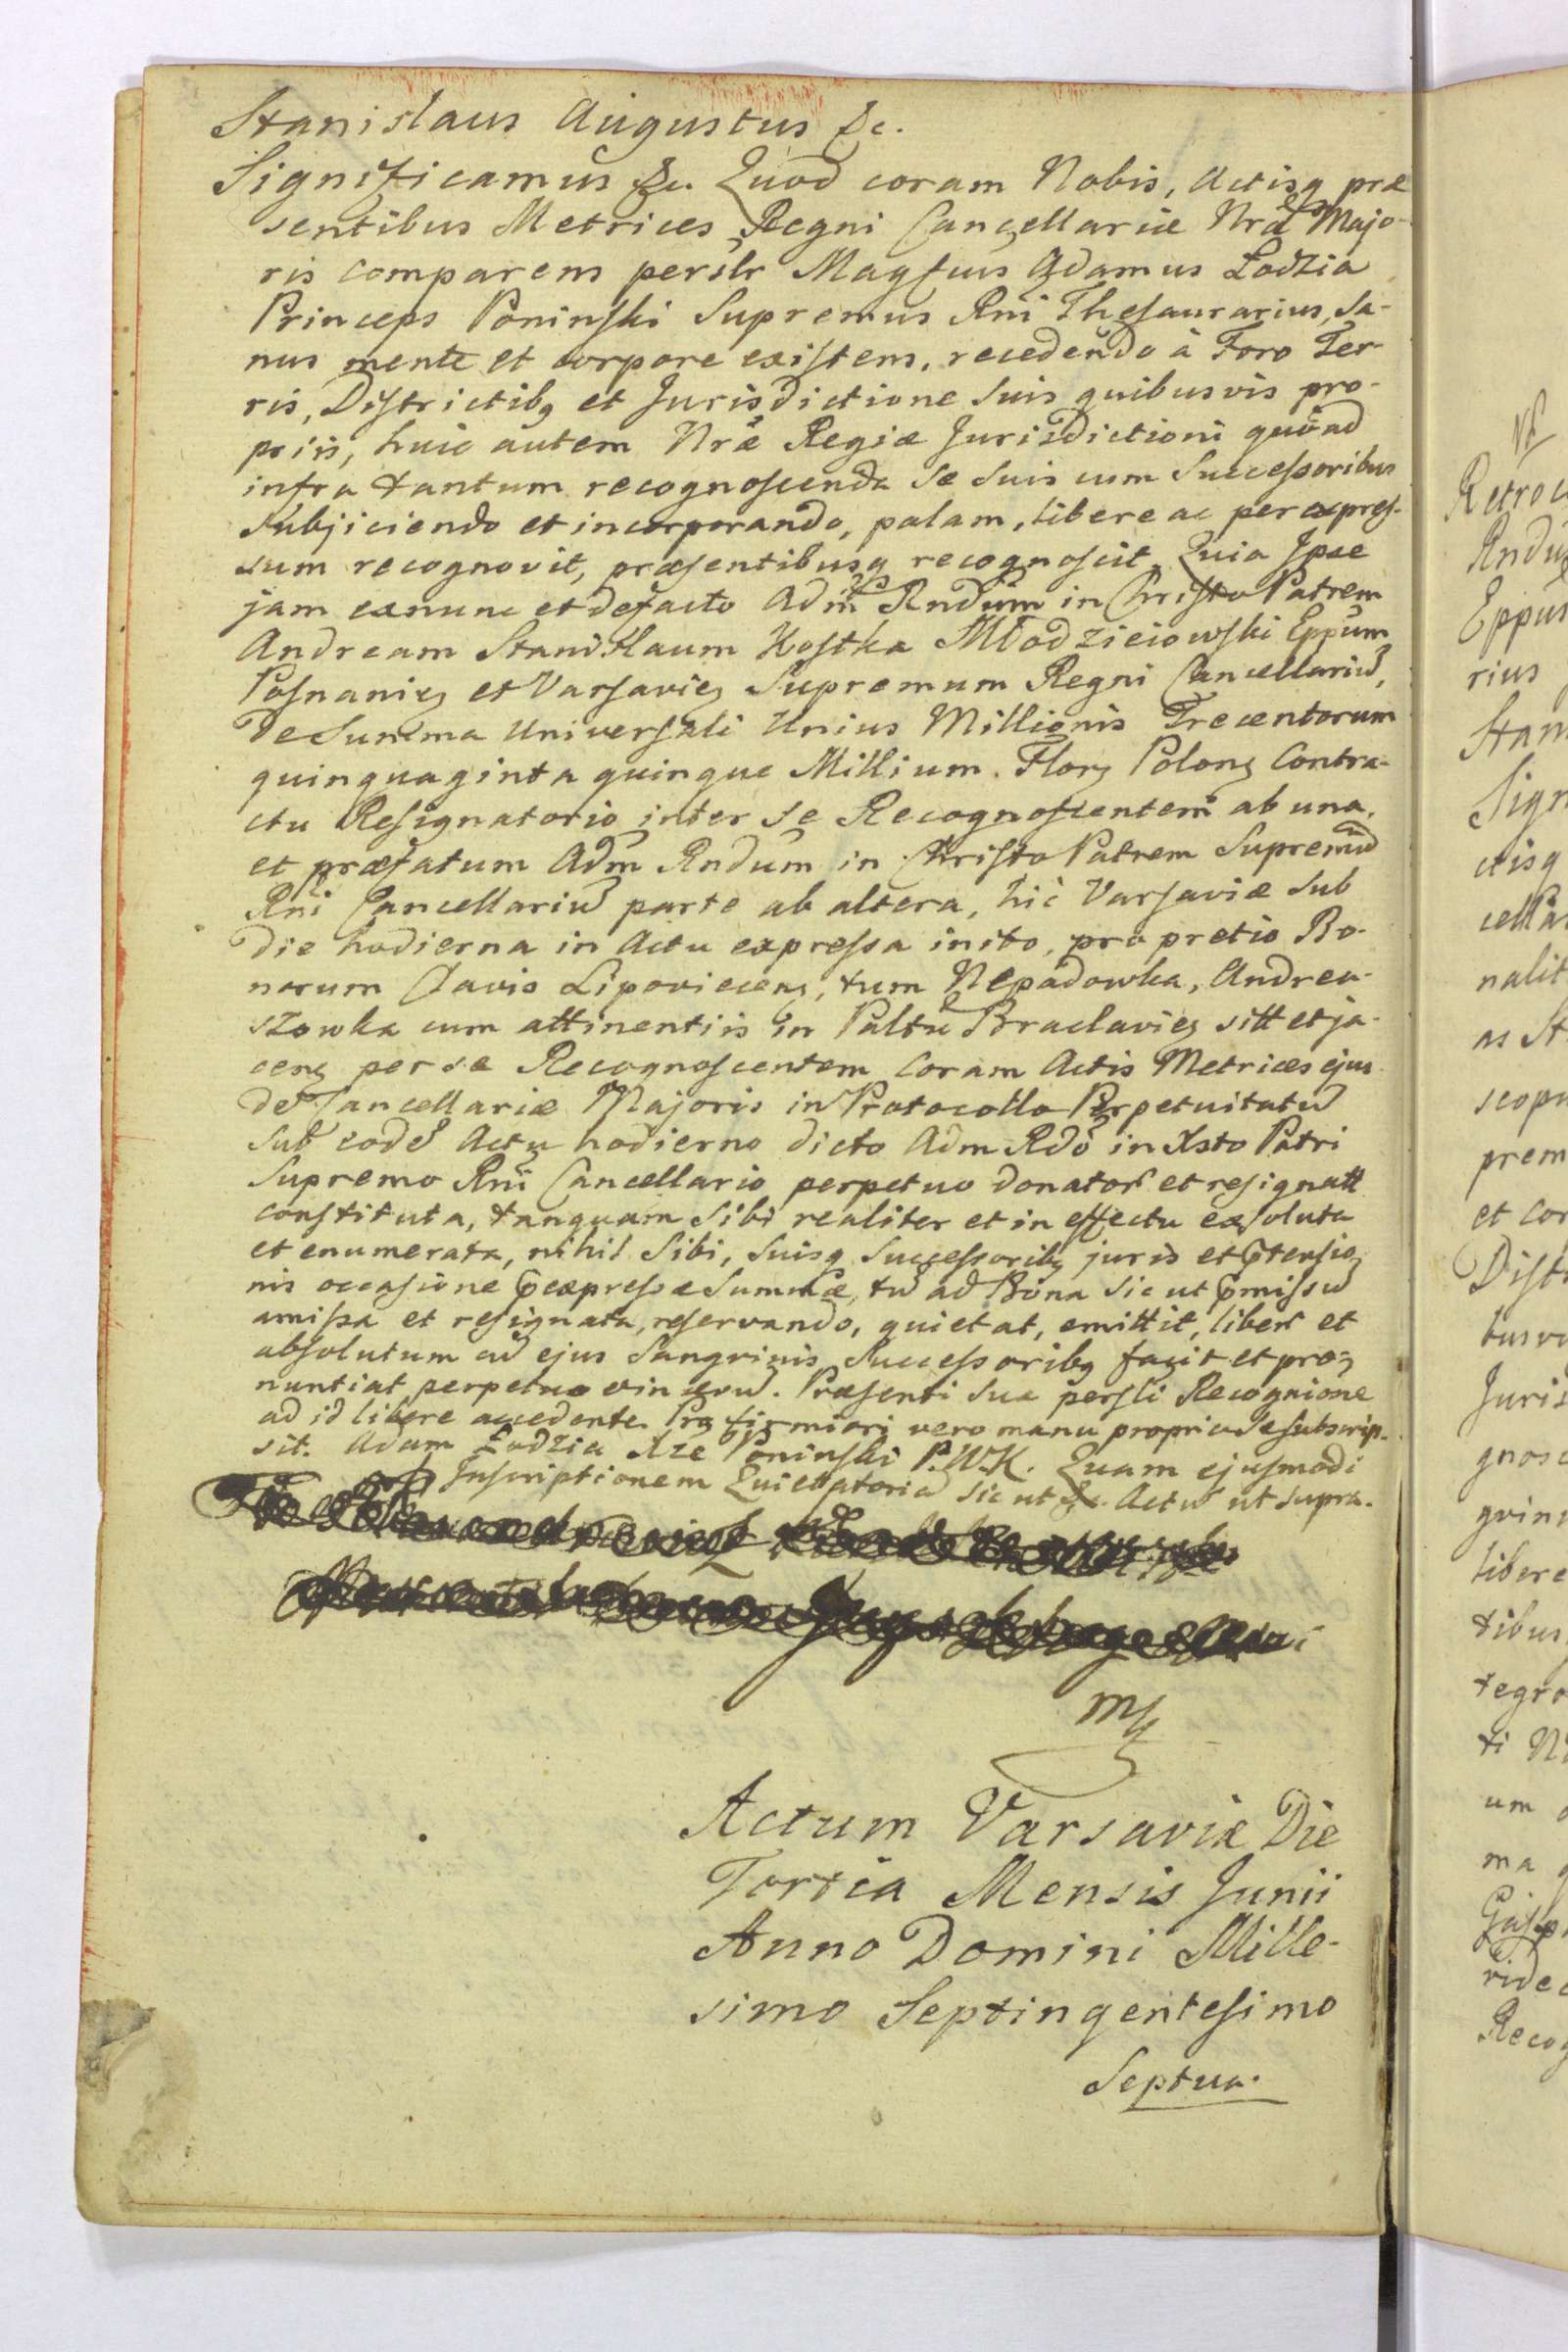 Stanislaus Augustus &c.
Significamus &c. Quod coram Nobis, Actisq præ
sentibus Metrices Regni Cancellariæ Nræ Majo-
ris comparens persslr Magfcus Adamus Łodzia
Princeps Poninski Supremus Rni Thesaurarius, Sa-
nus mente et corpore existens, recedendo à Foro Ter-
ris, Districtibq et Jurisdictione Suis quibusvis pro-
priis, huic autem Nræ Regiæ Jurisdictioni quoad
infra tantum recognoscenda Se Suis cum Successoribus
Subjiciendo et incorporando, palam, libere ac per expres-
sum recognovit, præsentibusq recognoscit. Quia Ipse
jam exnunc et defacto Adm Rndum in Christo Patrem
Andream Stanislaum Kostka Młodzieiowski Eppum
Posnanieɳ et Varsavieɳ Supremum Regni Cancellariũ,
De Summa Universali Unius Millionis Trecentorum
quinquaginta quinque Millium. Flory Polonɳ Contra-
ctu Resignatorio inter Se Recognoscentem ab una,
et præfatum Adm Rndum in Christo Patrem Supremũ
Rni Cancellariũ parte ab altera, hic Varsaviæ Sub
die hodierna in Actu expressa inito, pro pretio Bo-
norum Clavis Lipoviecenɳ, tum Nepadowka, Andreu-
szowka cum attinentiis in Palttu Braclavieɳ sitt et ja-
cenɳ per se Recognoscentem Coram Actis Metrices ejus-
dẽ Cancellariæ Majoris in Protocollo Perpetuitatũ
Sub eodẽ Actu hodierno dicto Adm Rdo in Xsto Patri
Supremo Rni Cancellario perpetuo donatoꝝ et resignatt
constituta, tanquam Sibi realiter et in effectu exsoluta
et enumerata, nihil Sibi, Suisq Successoribq juris et Ꝓtensio
nis occasione Ꝓexpressæ Summæ, tũ ad Bona Sic ut Ꝓmissũ
amissa et resignata, reservando, quietat, emittit, liberũ et
absolutum cũ ejus Sangvinis Successoribq facit et pro-
nuntiat perpetuo vin . Præsenti Sua persli Recognione
ad id libere accedente. Pro firmiori vero manu propria Se subscrip-
sit. Adam Łodzia Xze Poninski P.W.K. Quam ejusmodi
Inscriptionem Quietatoriã Sic ut &c. Actũ ut Supra.
Actum Varsaviæ Die
Tertia Mensis Junii
Anno Domini Mille-
simo Septingentesimo
Septua.
Retroc
Rndu
Eppus
rius
Stan
Sign
ctisq
cella
nalit
as St
scopu
prem
et cor
Distr
busvi
Juris
gnosc
gvini
libere
tibus
tegro
ti N
um
ma
ride
Recog